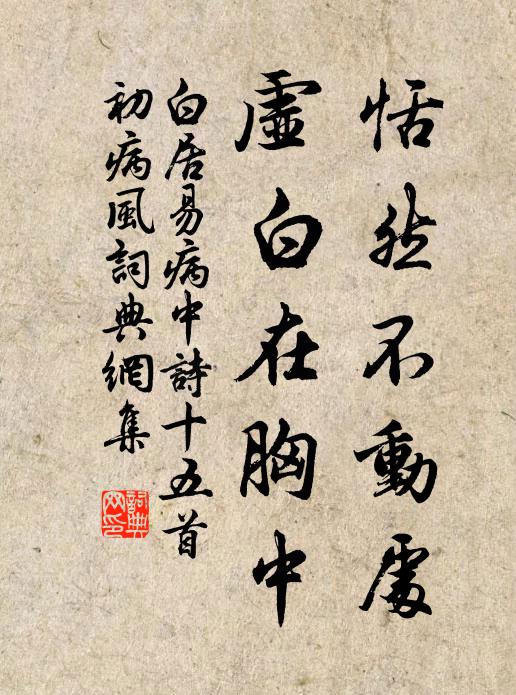 恬然不動處
虛白在胸中
白居易病中詩十五首
初病風詞典網集
詞典网印